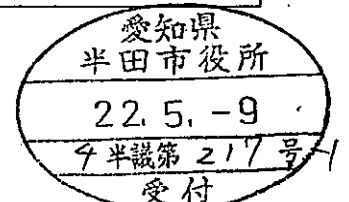 愛知県
半田市役所
22.5.-9
4半議第217号-1
受付